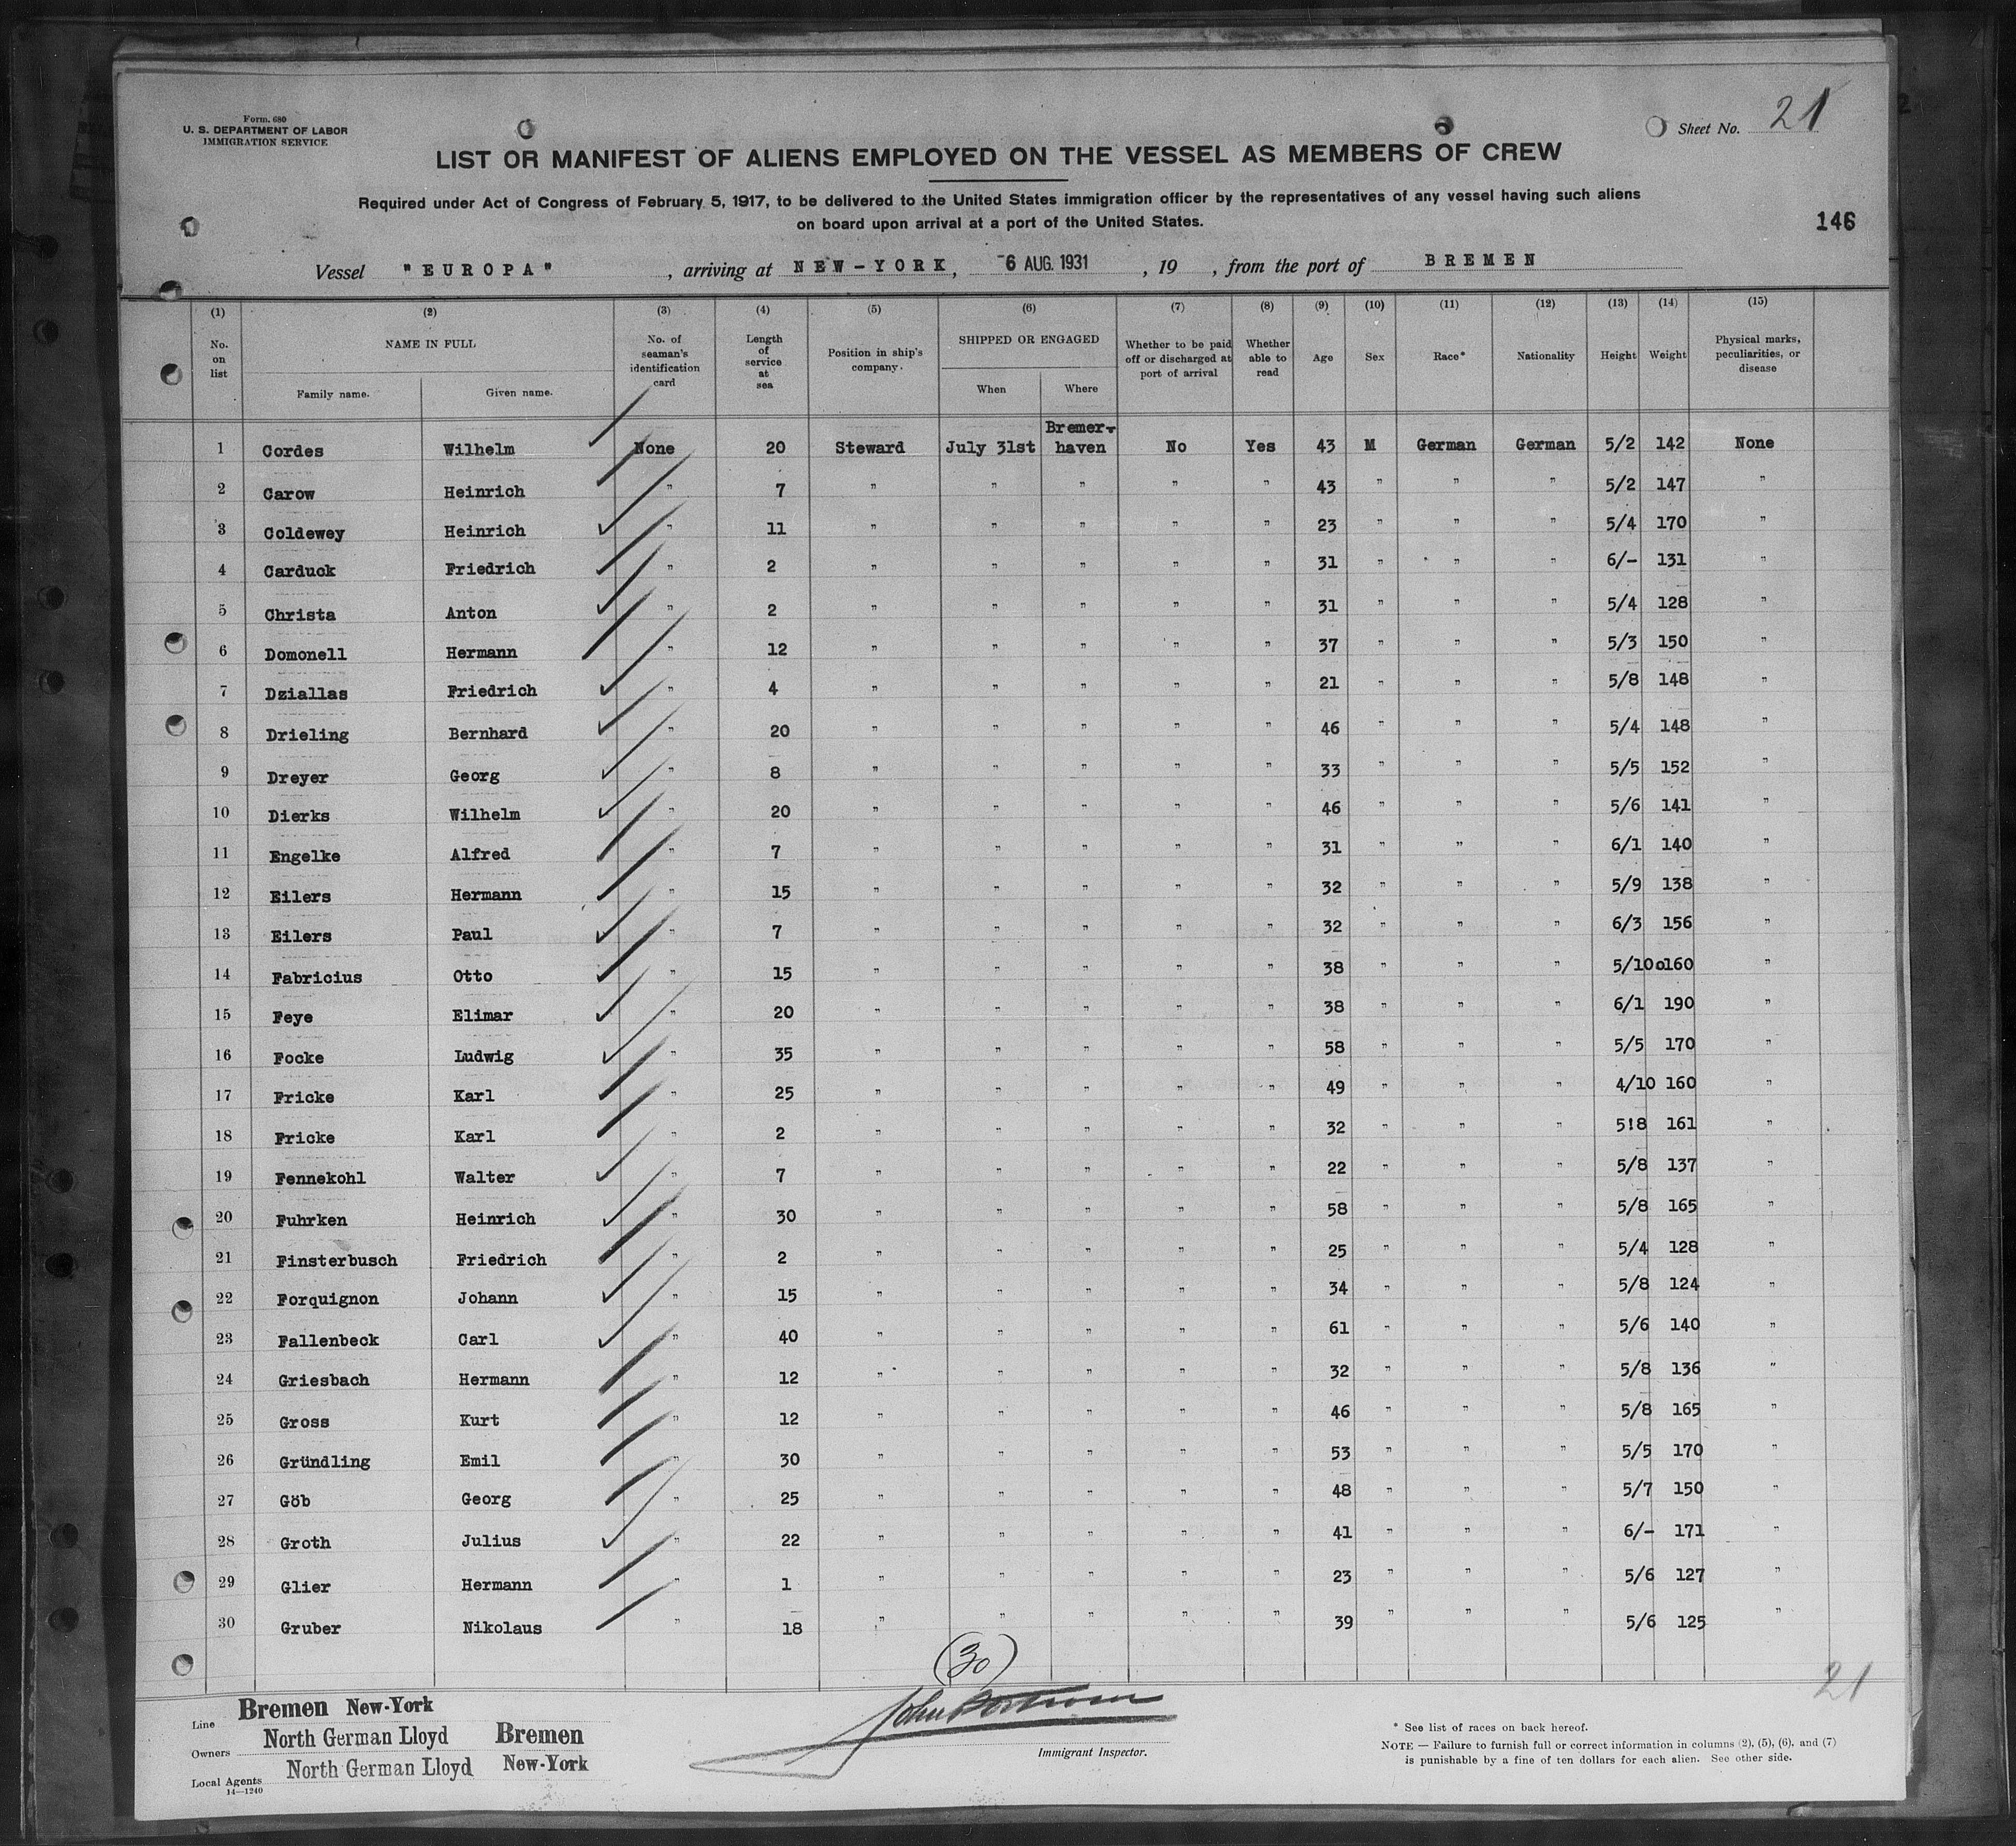 Form. 680
U. S. DEPARTMENT OF LABOR
IMMIGRATION SERVICE
Sheet No. 21
LIST OR MANIFEST OF ALIENS EMPLOYED ON THE VESSEL AS MEMBERS OF CREW
Required under Act of Congress of February 5, 1917, to be delivered to the United States immigration officer by the representatives of any vessel having such aliens
on board upon arrival at a port of the United States.
146
Vessel "EUROPA", arriving at NEW-YORK, -6 AUG. 1931, 19 , from the port of BREMEN
(1) (2) (3) (4) (5) (6) (7) (8) (9) (10) (11) (12) (13) (14) (15)
No. on list NAME IN FULL Family name. Given name. No. of seaman's identification card Length of service at sea Position in ship's company. SHIPPED OR ENGAGED When Where Whether to be paid off or discharged at port of arrival Whether able to read Age Sex Race* Nationality Height Weight Physical marks, peculiarities, or disease
1 Cordes Wilhelm None 20 Steward July 31st Bremer-haven No Yes 43 M German German 5/2 142 None
2 Carow Heinrich " 7 " " " " " 43 " " " 5/2 147 "
3 Coldewey Heinrich " 11 " " " " " 23 " " " 5/4 170 "
4 Carduck Friedrich " 2 " " " " " 31 " " " 6/- 131 "
5 Christa Anton " 2 " " " " " 31 " " " 5/4 128 "
6 Domonell Hermann " 12 " " " " " 37 " " " 5/3 150 "
7 Dziallas Friedrich " 4 " " " " " 21 " " " 5/8 148 "
8 Drieling Bernhard " 20 " " " " " 46 " " " 5/4 148 "
9 Dreyer Georg " 8 " " " " " 33 " " " 5/5 152 "
10 Dierks Wilhelm " 20 " " " " " 46 " " " 5/6 141 "
11 Engelke Alfred " 7 " " " " " 31 " " " 6/1 140 "
12 Eilers Hermann " 15 " " " " " 32 " " " 5/9 138 "
13 Eilers Paul " 7 " " " " " 32 " " " 6/3 156 "
14 Fabricius Otto " 15 " " " " " 38 " " " 5/10 o160 "
15 Feye Elimar " 20 " " " " " 38 " " " 6/1 190 "
16 Focke Ludwig " 35 " " " " " 58 " " " 5/5 170 "
17 Fricke Karl " 25 " " " " " 49 " " " 4/10 160 "
18 Fricke Karl " 2 " " " " " 32 " " " 5!8 161 "
19 Fennekohl Walter " 7 " " " " " 22 " " " 5/8 137 "
20 Fuhrken Heinrich " 30 " " " " " 58 " " " 5/8 165 "
21 Finsterbusch Friedrich " 2 " " " " " 25 " " " 5/4 128 "
22 Forquignon Johann " 15 " " " " " 34 " " " 5/8 124 "
23 Fallenbeck Carl " 40 " " " " " 61 " " " 5/6 140 "
24 Griesbach Hermann " 12 " " " " " 32 " " " 5/8 136 "
25 Gross Kurt " 12 " " " " " 46 " " " 5/8 165 "
26 Gründling Emil " 30 " " " " " 53 " " " 5/5 170 "
27 Göb Georg " 25 " " " " " 48 " " " 5/7 150 "
28 Groth Julius " 22 " " " " " 41 " " " 6/- 171 "
29 Glier Hermann " 1 " " " " " 23 " " " 5/6 127 "
30 Gruber Nikolaus " 18 " " " " " 39 " " " 5/6 125 "
(30)
21
Line Bremen New-York
Owners North German Lloyd Bremen
Local Agents North German Lloyd New-York
14—1240
John
Immigrant Inspector.
* See list of races on back hereof.
NOTE — Failure to furnish full or correct information in columns (2), (5), (6), and (7)
is punishable by a fine of ten dollars for each alien. See other side.